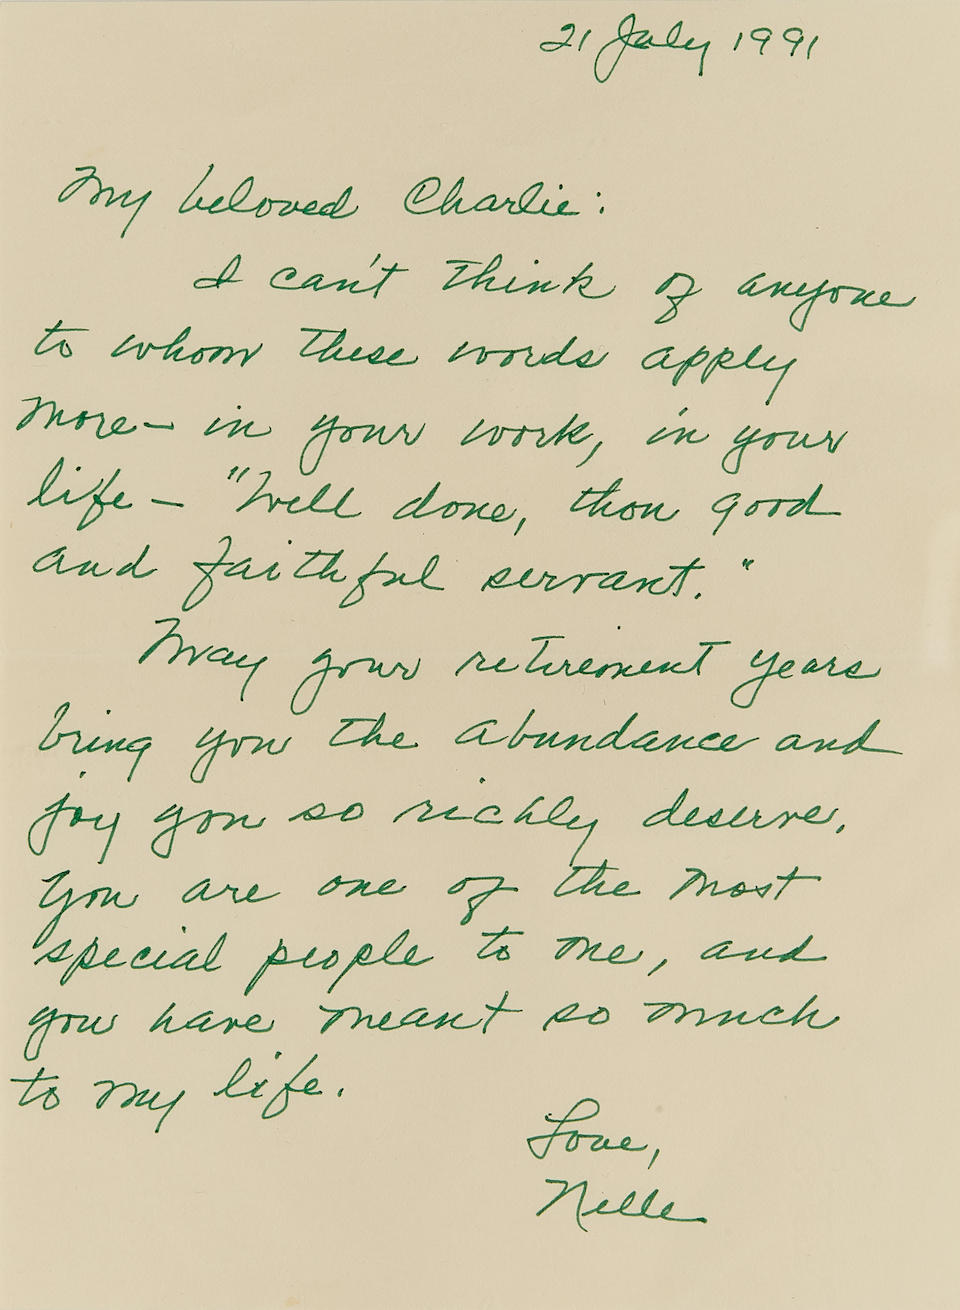 21 July 1991
My beloved Charlie:
I can't think of anyone
to whom these words apply
more — in your work, in your
life — "Well done, thou good
and faithful servant."
May your retirement years
bring you the abundance and
joy you so richly deserve.
You are one of the most
special people to me, and
you have meant so much
to my life.
Love,
Nelle